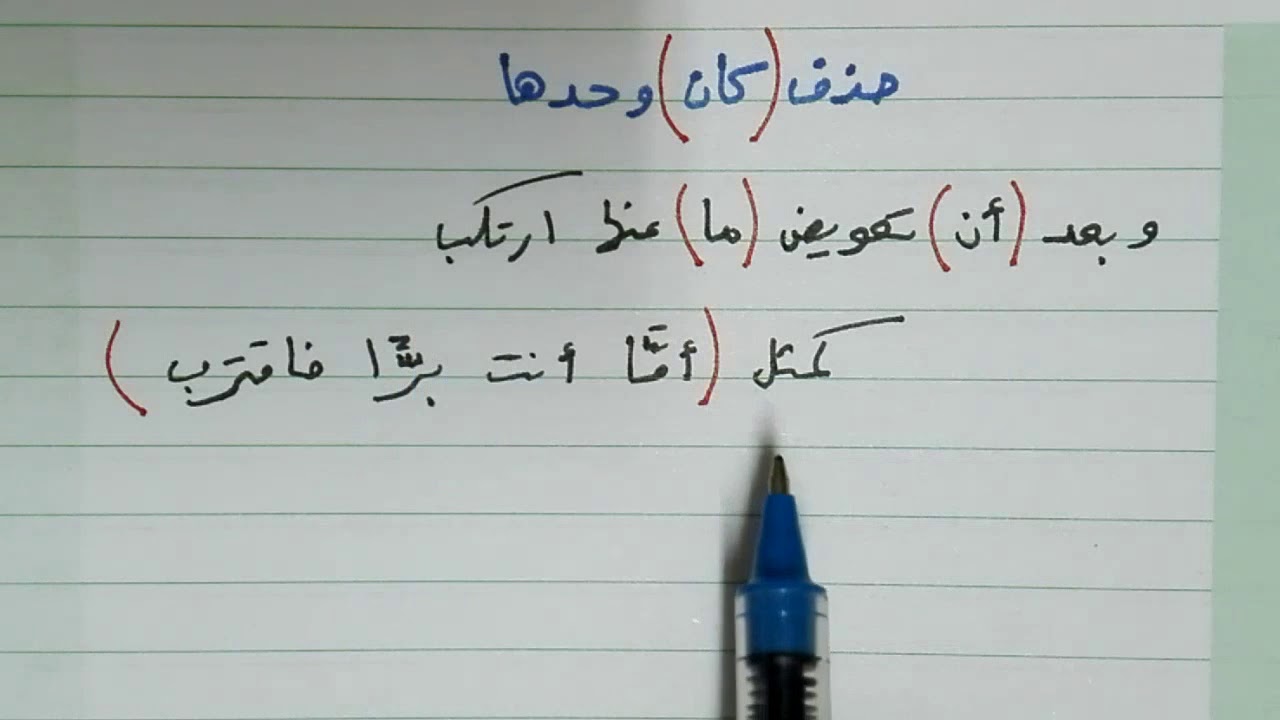 حذف (كان) وحدها
وبعد (أن) تعويض (ما) عنها ارتكب
كمثل (أمَّا أنت برًّا فاقترب)